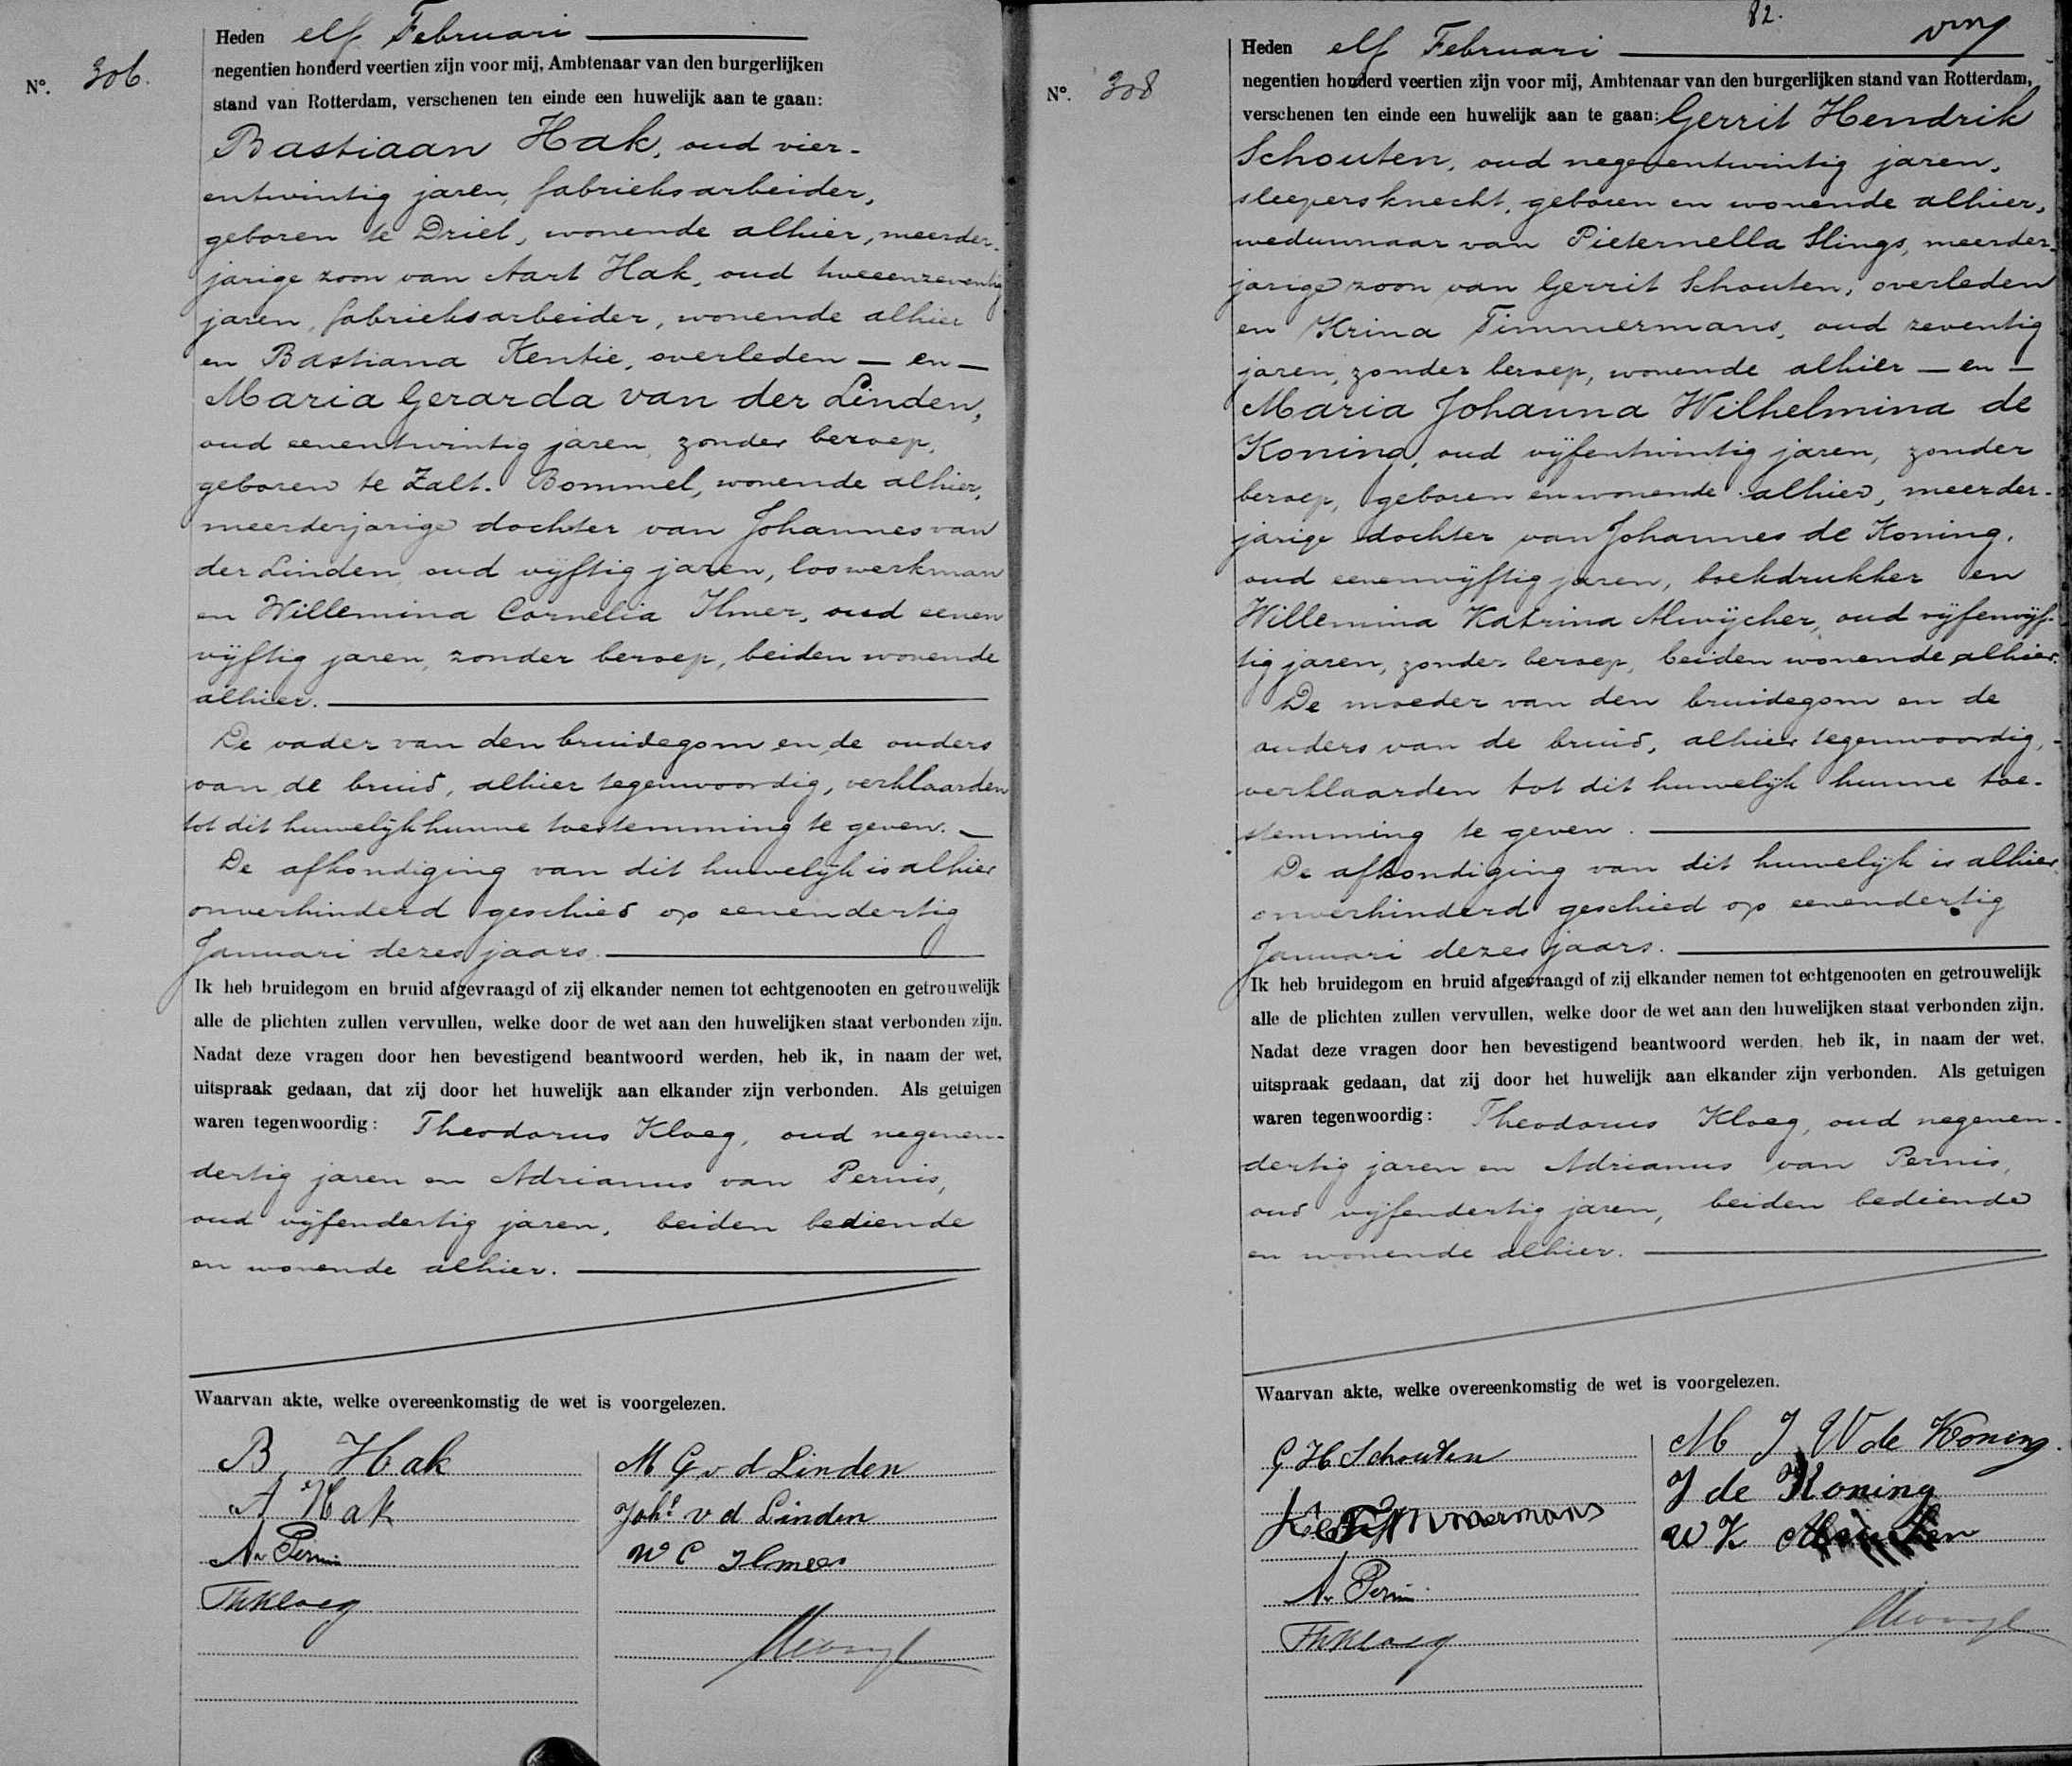 Heden elf Februari
Nº. 306.
negentien honderd veertien zijn voor mij, Ambtenaar van den burgerlijken
stand van Rotterdam, verschenen ten einde een huwelijk aan te gaan:
Bastiaan Hak, oud vier-
entwintig jaren, fabrieksarbeider,
geboren te Driel, wonende alhier, meerder-
jarige zoon van Aart Hak, oud tweeenzeventig
jaren, fabrieksarbeider, wonende alhier
en Bastiana Kentie, overleden — en —
Maria Gerarda van der Linden,
oud eenentwintig jaren, zonder beroep,
geboren te Zalt-Bommel, wonende alhier,
meerderjarige dochter van Johannes van
der Linden, oud vijftig jaren, los werkman
en Willemina Cornelia Ilmer, oud eenen
vijftig jaren, zonder beroep, beiden wonende
alhier.
De vader van den bruidegom en de ouders
van de bruid, alhier tegenwoordig, verklaarden
tot dit huwelijk hunne toestemming te geven. —
De afkondiging van dit huwelijk is alhier
onverhinderd geschied op eenendertig
Januari dezes jaars.
Ik heb bruidegom en bruid afgevraagd of zij elkander nemen tot echtgenooten en getrouwelijk
alle de plichten zullen vervullen, welke door de wet aan den huwelijken staat verbonden zijn.
Nadat deze vragen door hen bevestigend beantwoord werden, heb ik, in naam der wet,
uitspraak gedaan, dat zij door het huwelijk aan elkander zijn verbonden. Als getuigen
waren tegenwoordig: Theodorus Kloeg, oud negenen-
dertig jaren en Adrianus van Pernis,
oud vijfendertig jaren, beiden bediende
en wonende alhier.
Waarvan akte, welke overeenkomstig de wet is voorgelezen.
B. Hak
M G v d Linden
A Hak
Johs v d Linden
A v Pernis
W C Ilmer
ThKloeg
82.
Heden elf Februari
Nº. 308
negentien honderd veertien zijn voor mij, Ambtenaar van den burgerlijken stand van Rotterdam,
verschenen ten einde een huwelijk aan te gaan: Gerrit Hendrik
Schouten, oud negenentwintig jaren,
sleepersknecht, geboren en wonende alhier,
weduwnaar van Pieternella Slings, meerder-
jarige zoon van Gerrit Schouten, overleden
en Krina Timmermans, oud zeventig
jaren, zonder beroep, wonende alhier — en —
Maria Johanna Wilhelmina de
Koning, oud vijfentwintig jaren, zonder
beroep, geboren en wonende alhier, meerder-
jarige dochter van Johannes de Koning,
oud eenenvijftig jaren, boekdrukker en
Willemina Katrina Alwijcher, oud vijfenvijf-
tig jaren, zonder beroep, beiden wonende alhier.
De moeder van den bruidegom en de
ouders van de bruid, alhier tegenwoordig,
verklaarden tot dit huwelijk hunne toe-
stemming te geven.
De afkondiging van dit huwelijk is alhier
onverhinderd geschied op eenendertig
Januari dezes jaars.
Ik heb bruidegom en bruid afgevraagd of zij elkander nemen tot echtgenooten en getrouwelijk
alle de plichten zullen vervullen, welke door de wet aan den huwelijken staat verbonden zijn.
Nadat deze vragen door hen bevestigend beantwoord werden, heb ik, in naam der wet,
uitspraak gedaan, dat zij door het huwelijk aan elkander zijn verbonden. Als getuigen
waren tegenwoordig: Theodorus Kloeg, oud negenen-
dertig jaren en Adrianus van Pernis,
oud vijfendertig jaren, beiden bediende
en wonende alhier.
Waarvan akte, welke overeenkomstig de wet is voorgelezen.
G H Schouten
M J W de Koning
K Timmermans
J de Koning
W K
A v Pernis
ThKloeg